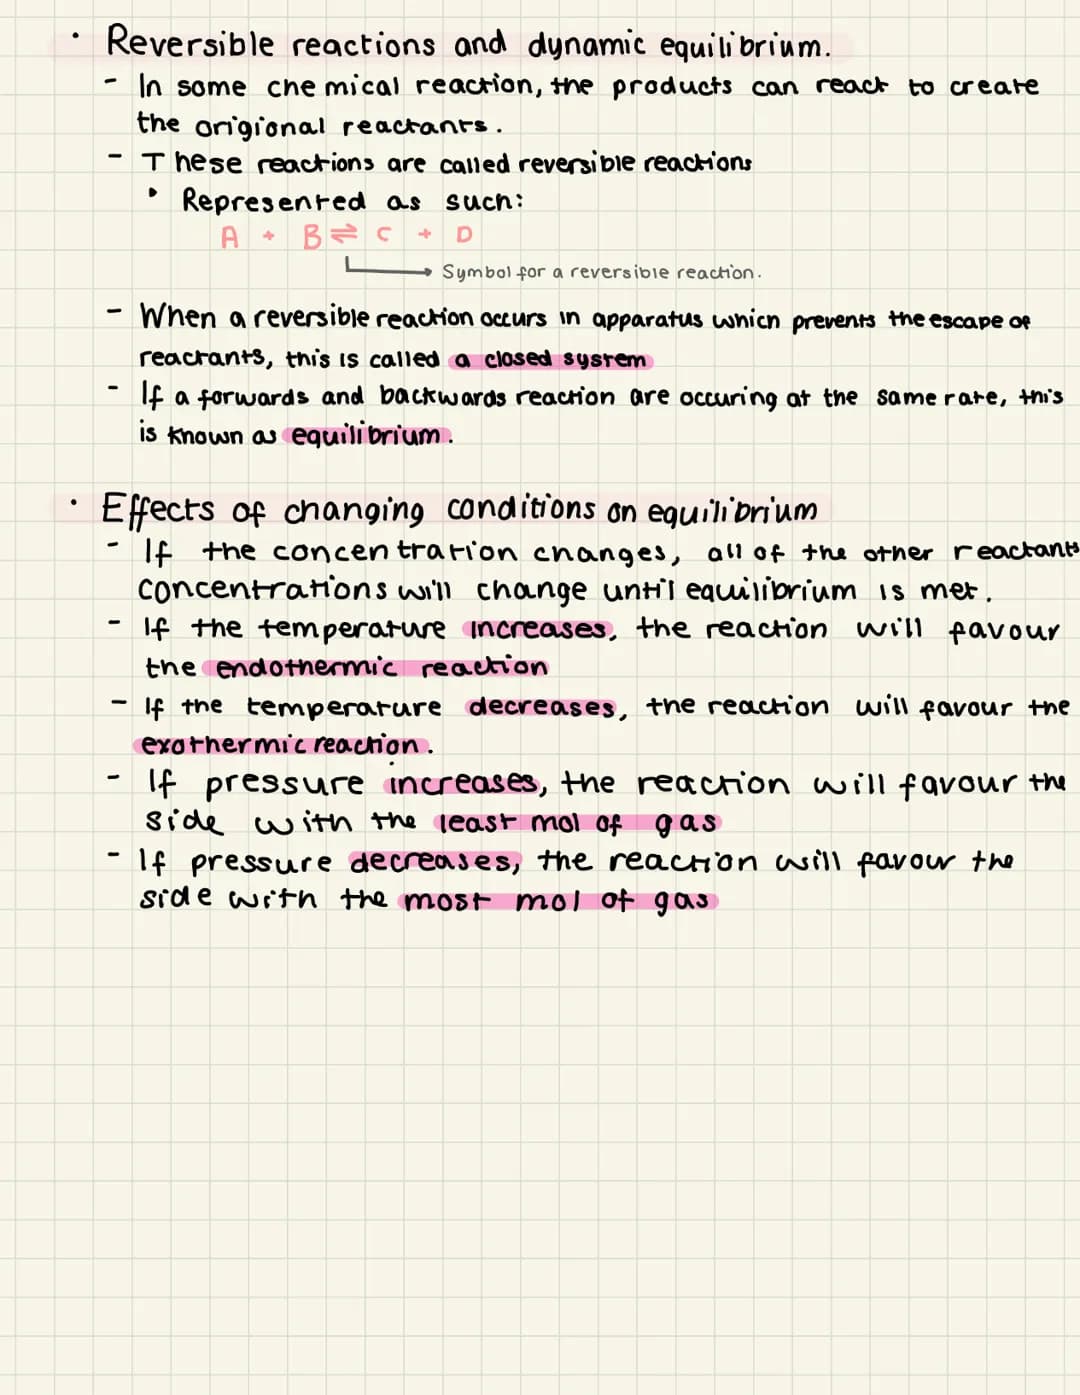 • Reversible reactions and dynamic equilibrium.
- In some chemical reaction, the products can react to create
the origional reactants.
- These reactions are called reversible reactions
• Represented as such:
A + B ⇌ C + D
Symbol for a reversible reaction.
- When a reversible reaction occurs in apparatus which prevents the escape of
reactants, this is called a closed system
- If a forwards and backwards reaction are occuring at the same rate, this
is known as equilibrium.
• Effects of changing conditions on equilibrium
- If the concentration changes, all of the other reactants
concentrations will change until equilibrium is met.
- If the temperature increases, the reaction will favour
the endothermic reaction
- If the temperature decreases, the reaction will favour the
exothermic reaction.
- If pressure increases, the reaction will favour the
side with the least mol of gas
- If pressure decreases, the reaction will favour the
side with the most mol of gas